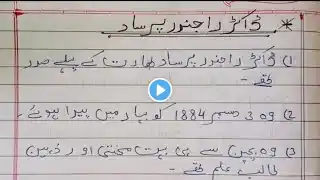 * ڈاکڑ راجندر پرساد
1) ڈاکڑ راجندر پرساد بھارت کے پہلے صدر
تھے -
2) وہ 3 دسمبر 1884 کو بہار میں پیدا ہوئے -
3) وہ بچپن سے ہی بہت محنتی اور ذہین
طالب علم تھے -